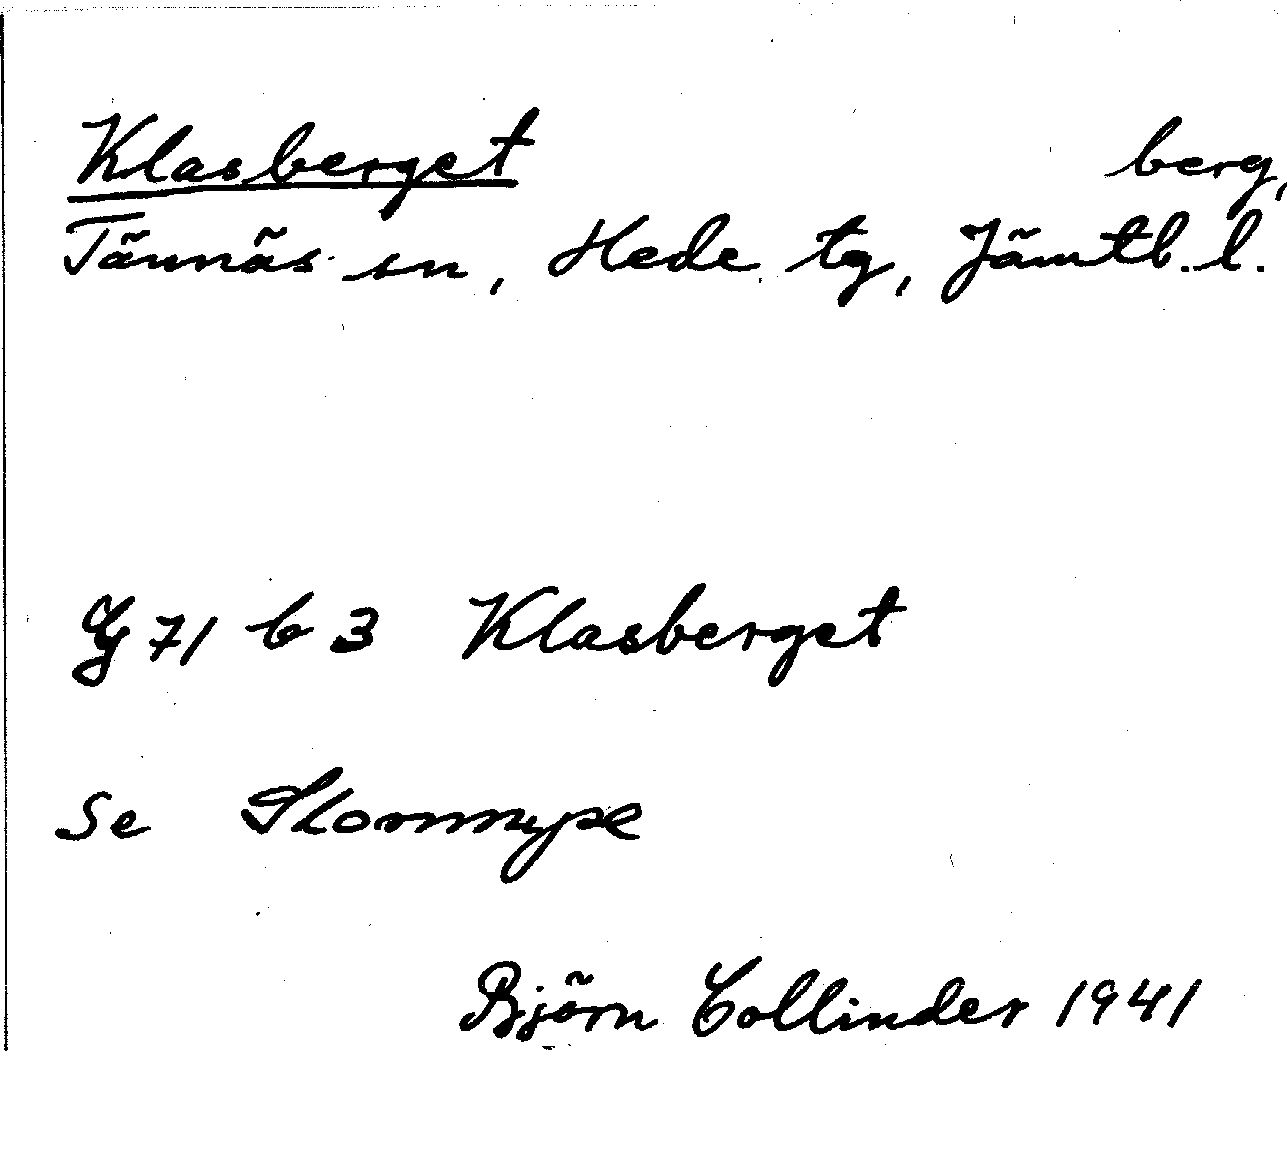 Klasberget berg,
Tännäs sn, Hede tg, Jämtl. l.
G 71 b 3 Klasberget
Se Stornnype
Björn Collinder 1941